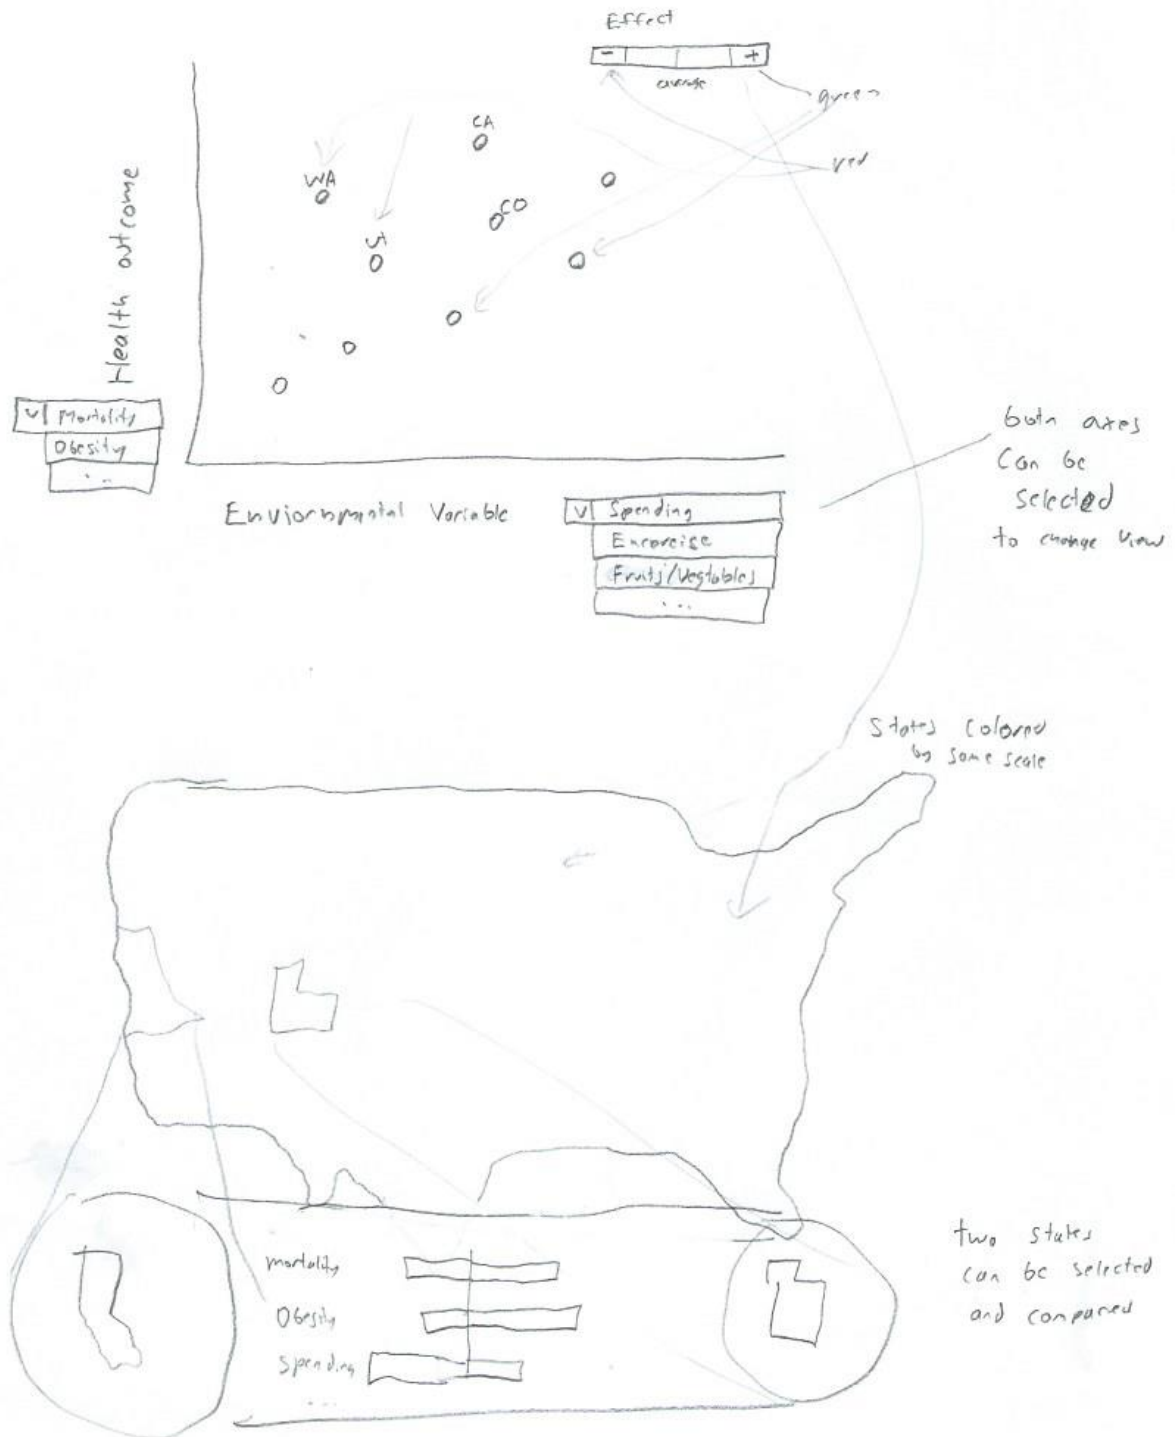 Effect
- +
average
green
red
CA
WA
CO
Health outcome
v Mortality
Obesity
...
Enviornmental Variable
v Spending
Excercise
Fruits/Vegtables
...
both axes
Can be
Selected
to change view
States Colored
by same scale
mortality
Obesity
Spending
...
two states
can be selected
and compared